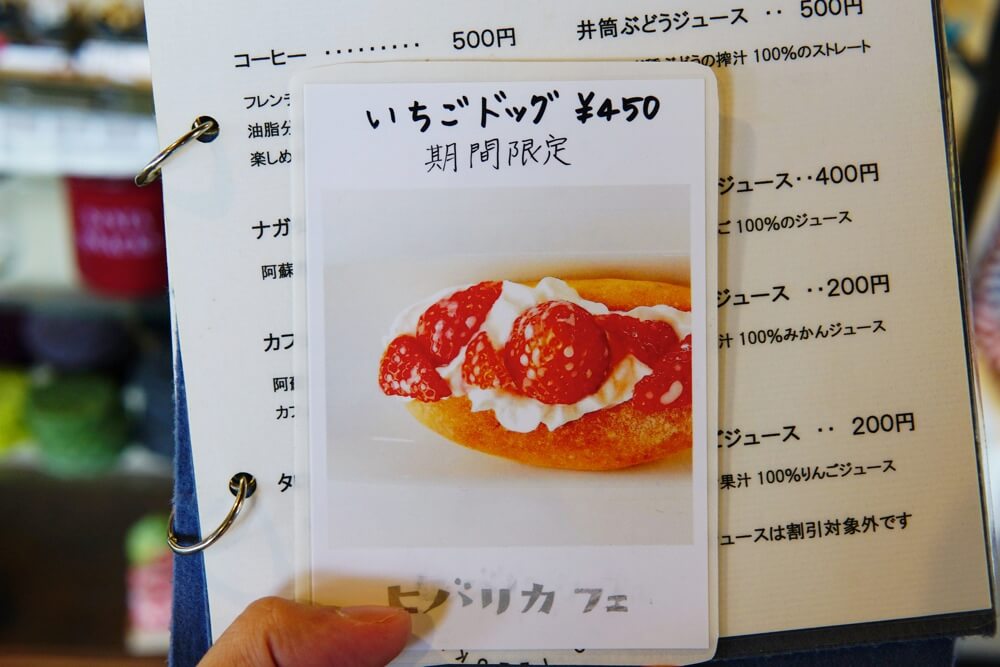 コーヒー ········· 500円
井筒ぶどうジュース ·· 500円
ぶどうの搾汁 100%のストレート
フレン
油脂分
楽しめ
いちごドッグ ¥450
期間限定
ジュース··400円
100%のジュース
ナガ
阿蘇
ジュース ··200円
汁 100%みかんジュース
カフ
阿蘇
カフ
ジュース ·· 200円
果汁 100%りんごジュース
タ
ュースは割引対象外です
ヒバリカフェ